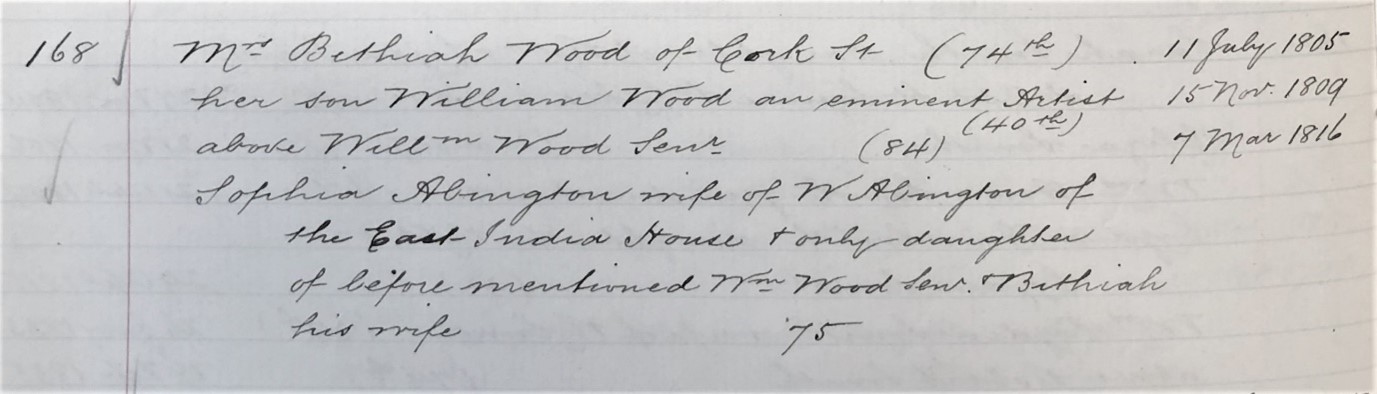 168 Mrs Bethiah Wood of Cork St (74th) 11 July 1805
her son William Wood an eminent Artist (40th) 15 Nov. 1809
above Willm Wood Senr (84) 7 Mar 1816
Sophia Abington wife of W Abington of
the East India House & only daughter
of before mentioned Wm Wood Senr. & Bethiah
his wife 75